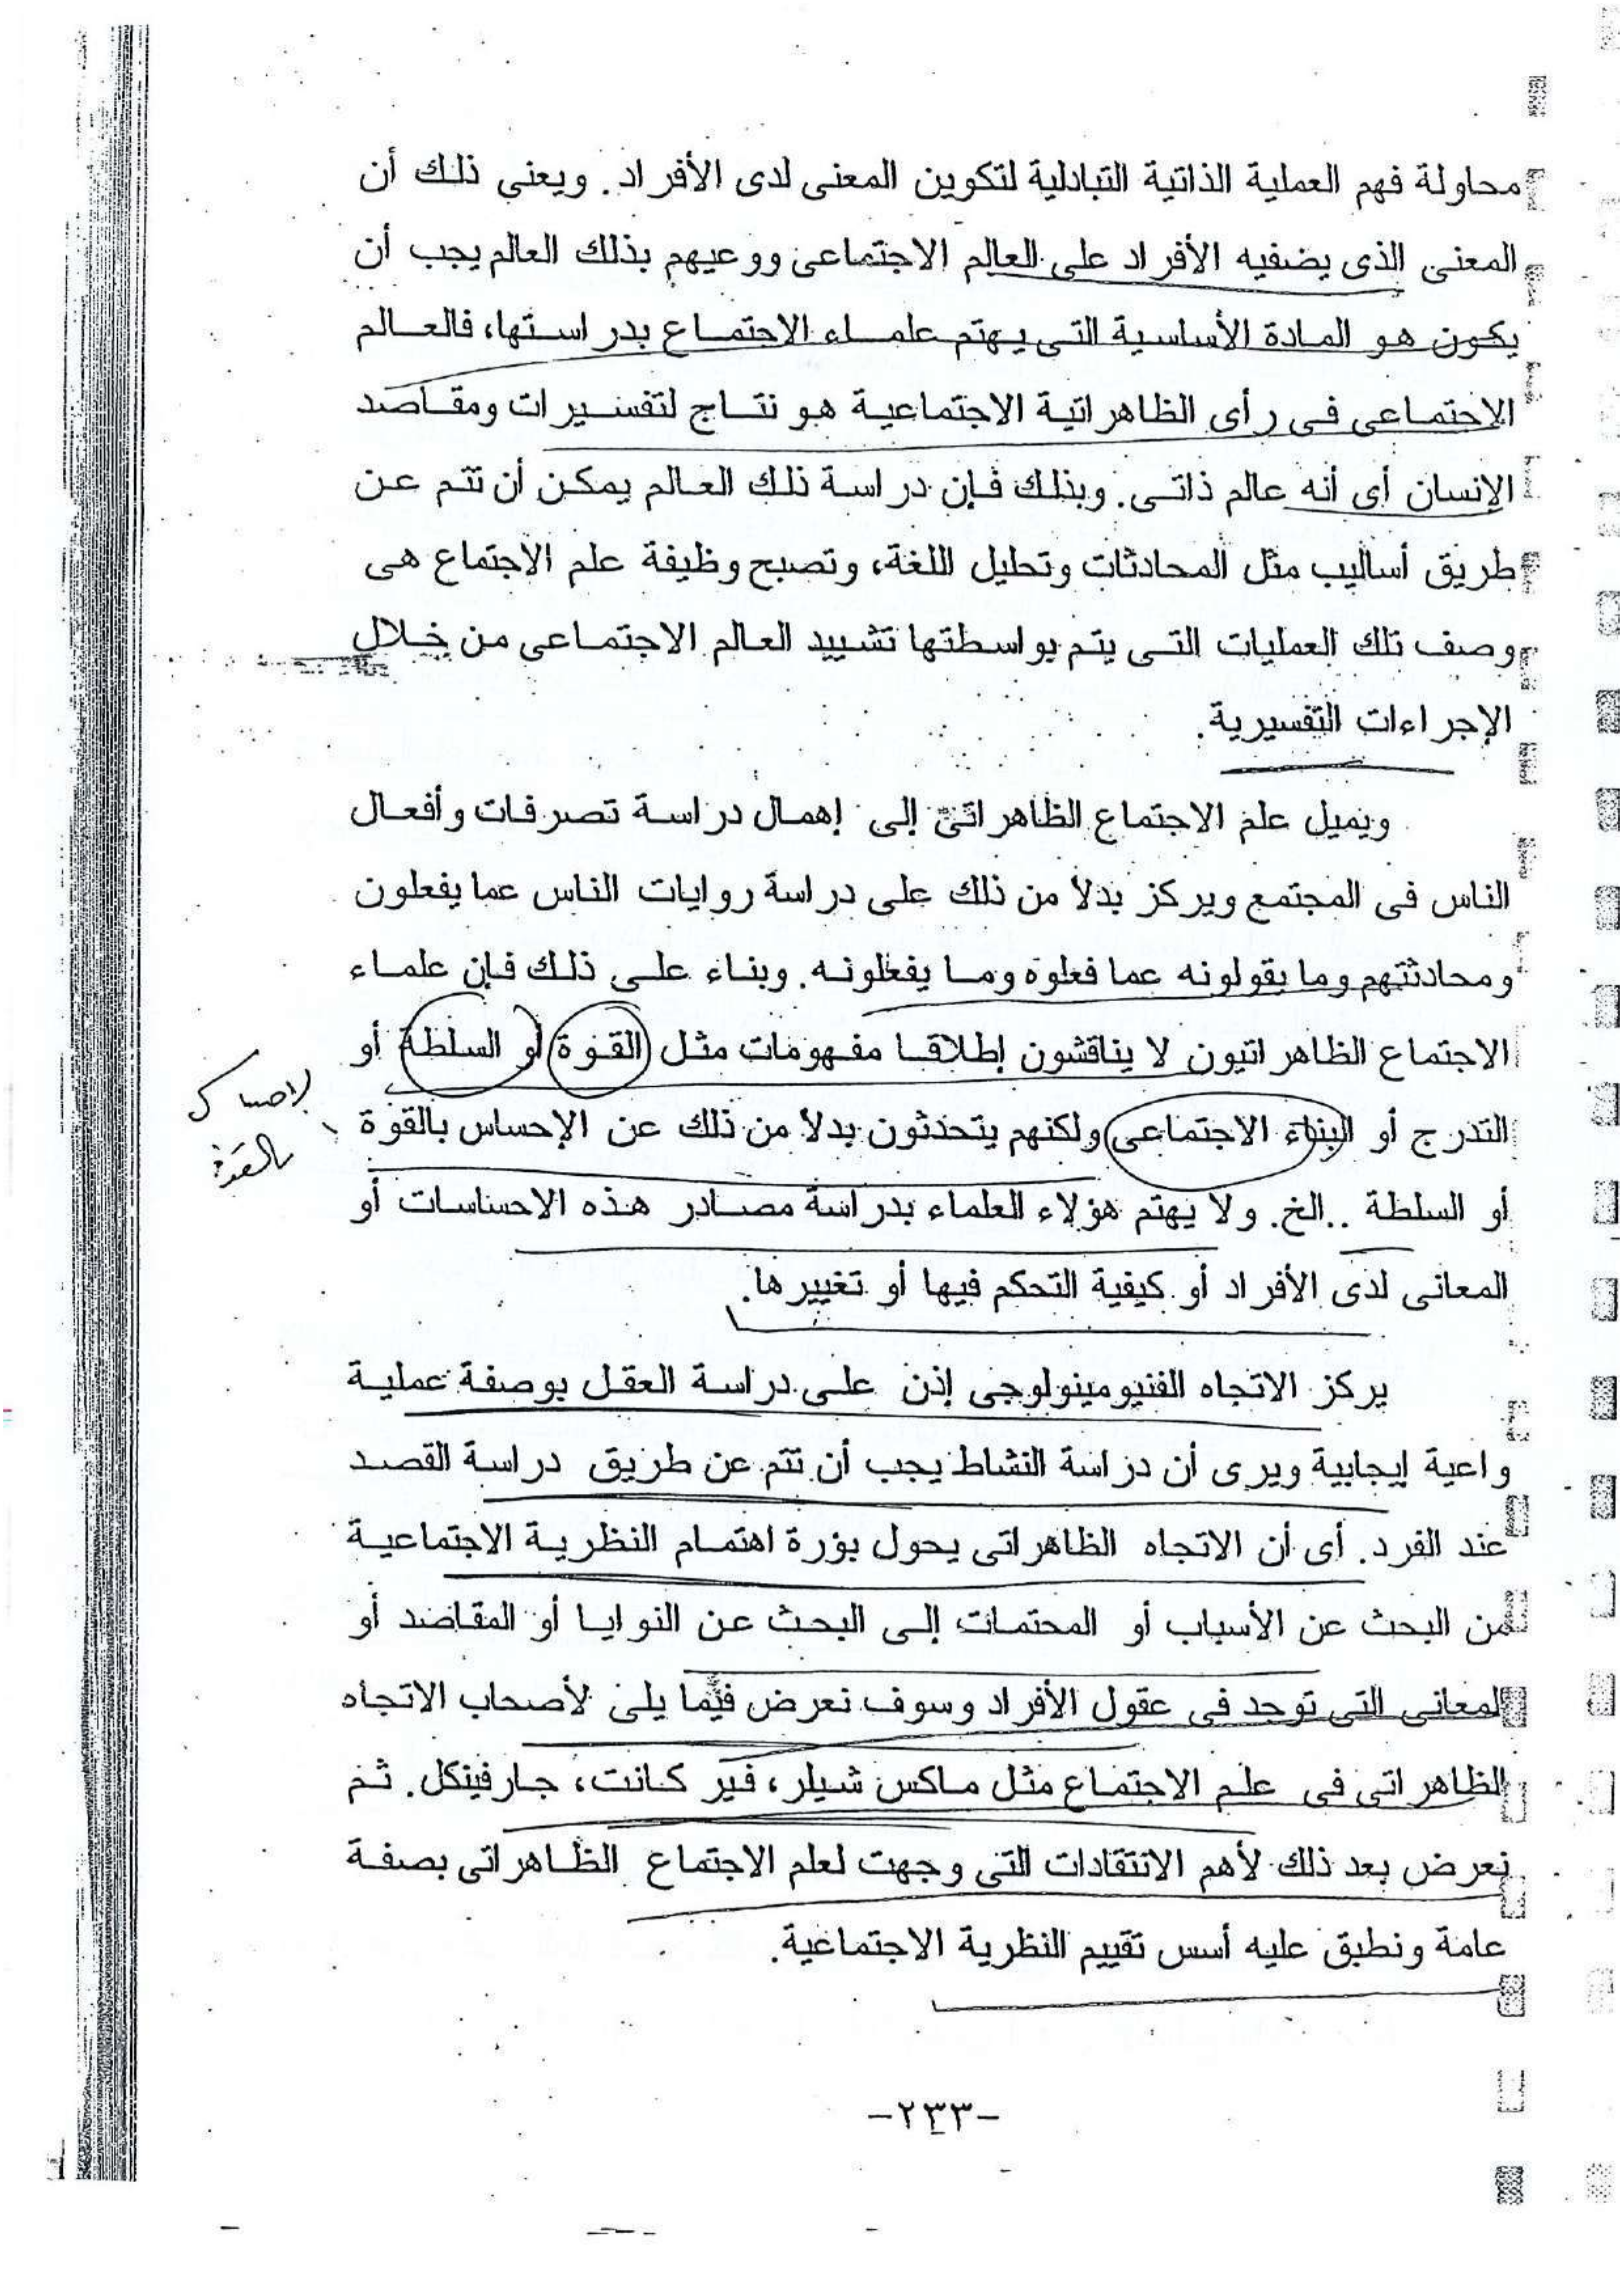 محاولة فهم العملية الذاتية التبادلية لتكوين المعنى لدى الأفراد. ويعنى ذلك أن
المعنى الذى يضفيه الأفراد على العالم الاجتماعى ووعيهم بذلك العالم يجب أن
يكون هو المادة الأساسية التى يهتم علماء الاجتماع بدراستها، فالعالم
الاجتماعى فى رأى الظاهراتية الاجتماعية هو نتاج لتفسيرات ومقاصد
الإنسان أى أنه عالم ذاتى. وبذلك فإن دراسة ذلك العالم يمكن أن تتم عن
طريق أساليب مثل المحادثات وتحليل اللغة، وتصبح وظيفة علم الاجتماع هى
وصف تلك العمليات التى يتم بواسطتها تشييد العالم الاجتماعى من خلال
الإجراءات التفسيرية.
ويميل علم الاجتماع الظاهراتى إلى إهمال دراسة تصرفات وأفعال
الناس فى المجتمع ويركز بدلا من ذلك على دراسة روايات الناس عما يفعلون
ومحادثتهم وما يقولونه عما فعلوه وما يفعلونه. وبناء على ذلك فإن علماء
الاجتماع الظاهراتيون لا يناقشون إطلاقا مفهومات مثل القوة أو السلطة أو
التدرج أو البناء الاجتماعى ولكنهم يتحدثون بدلا من ذلك عن الإحساس بالقوة
أو السلطة ..الخ. ولا يهتم هؤلاء العلماء بدراسة مصادر هذه الاحساسات أو
المعانى لدى الأفراد أو كيفية التحكم فيها أو تغييرها.
يركز الاتجاه الفنيومينولوجى إذن على دراسة العقل بوصفة عملية
واعية إيجابية ويرى أن دراسة النشاط يجب أن تتم عن طريق دراسة القصد
عند الفرد. أى أن الاتجاه الظاهراتى يحول بؤرة اهتمام النظرية الاجتماعية
من البحث عن الأسباب أو المحتمات إلى البحث عن النوايا أو المقاصد أو
المعانى التى توجد فى عقول الأفراد وسوف نعرض فيما يلى لأصحاب الاتجاه
الظاهراتى فى علم الاجتماع مثل ماكس شيلر، فير كانت، جارفينكل. ثم
نعرض بعد ذلك لأهم الانتقادات التى وجهت لعلم الاجتماع الظاهراتى بصفة
عامة ونطبق عليه أسس تقييم النظرية الاجتماعية.
-٢٣٣-